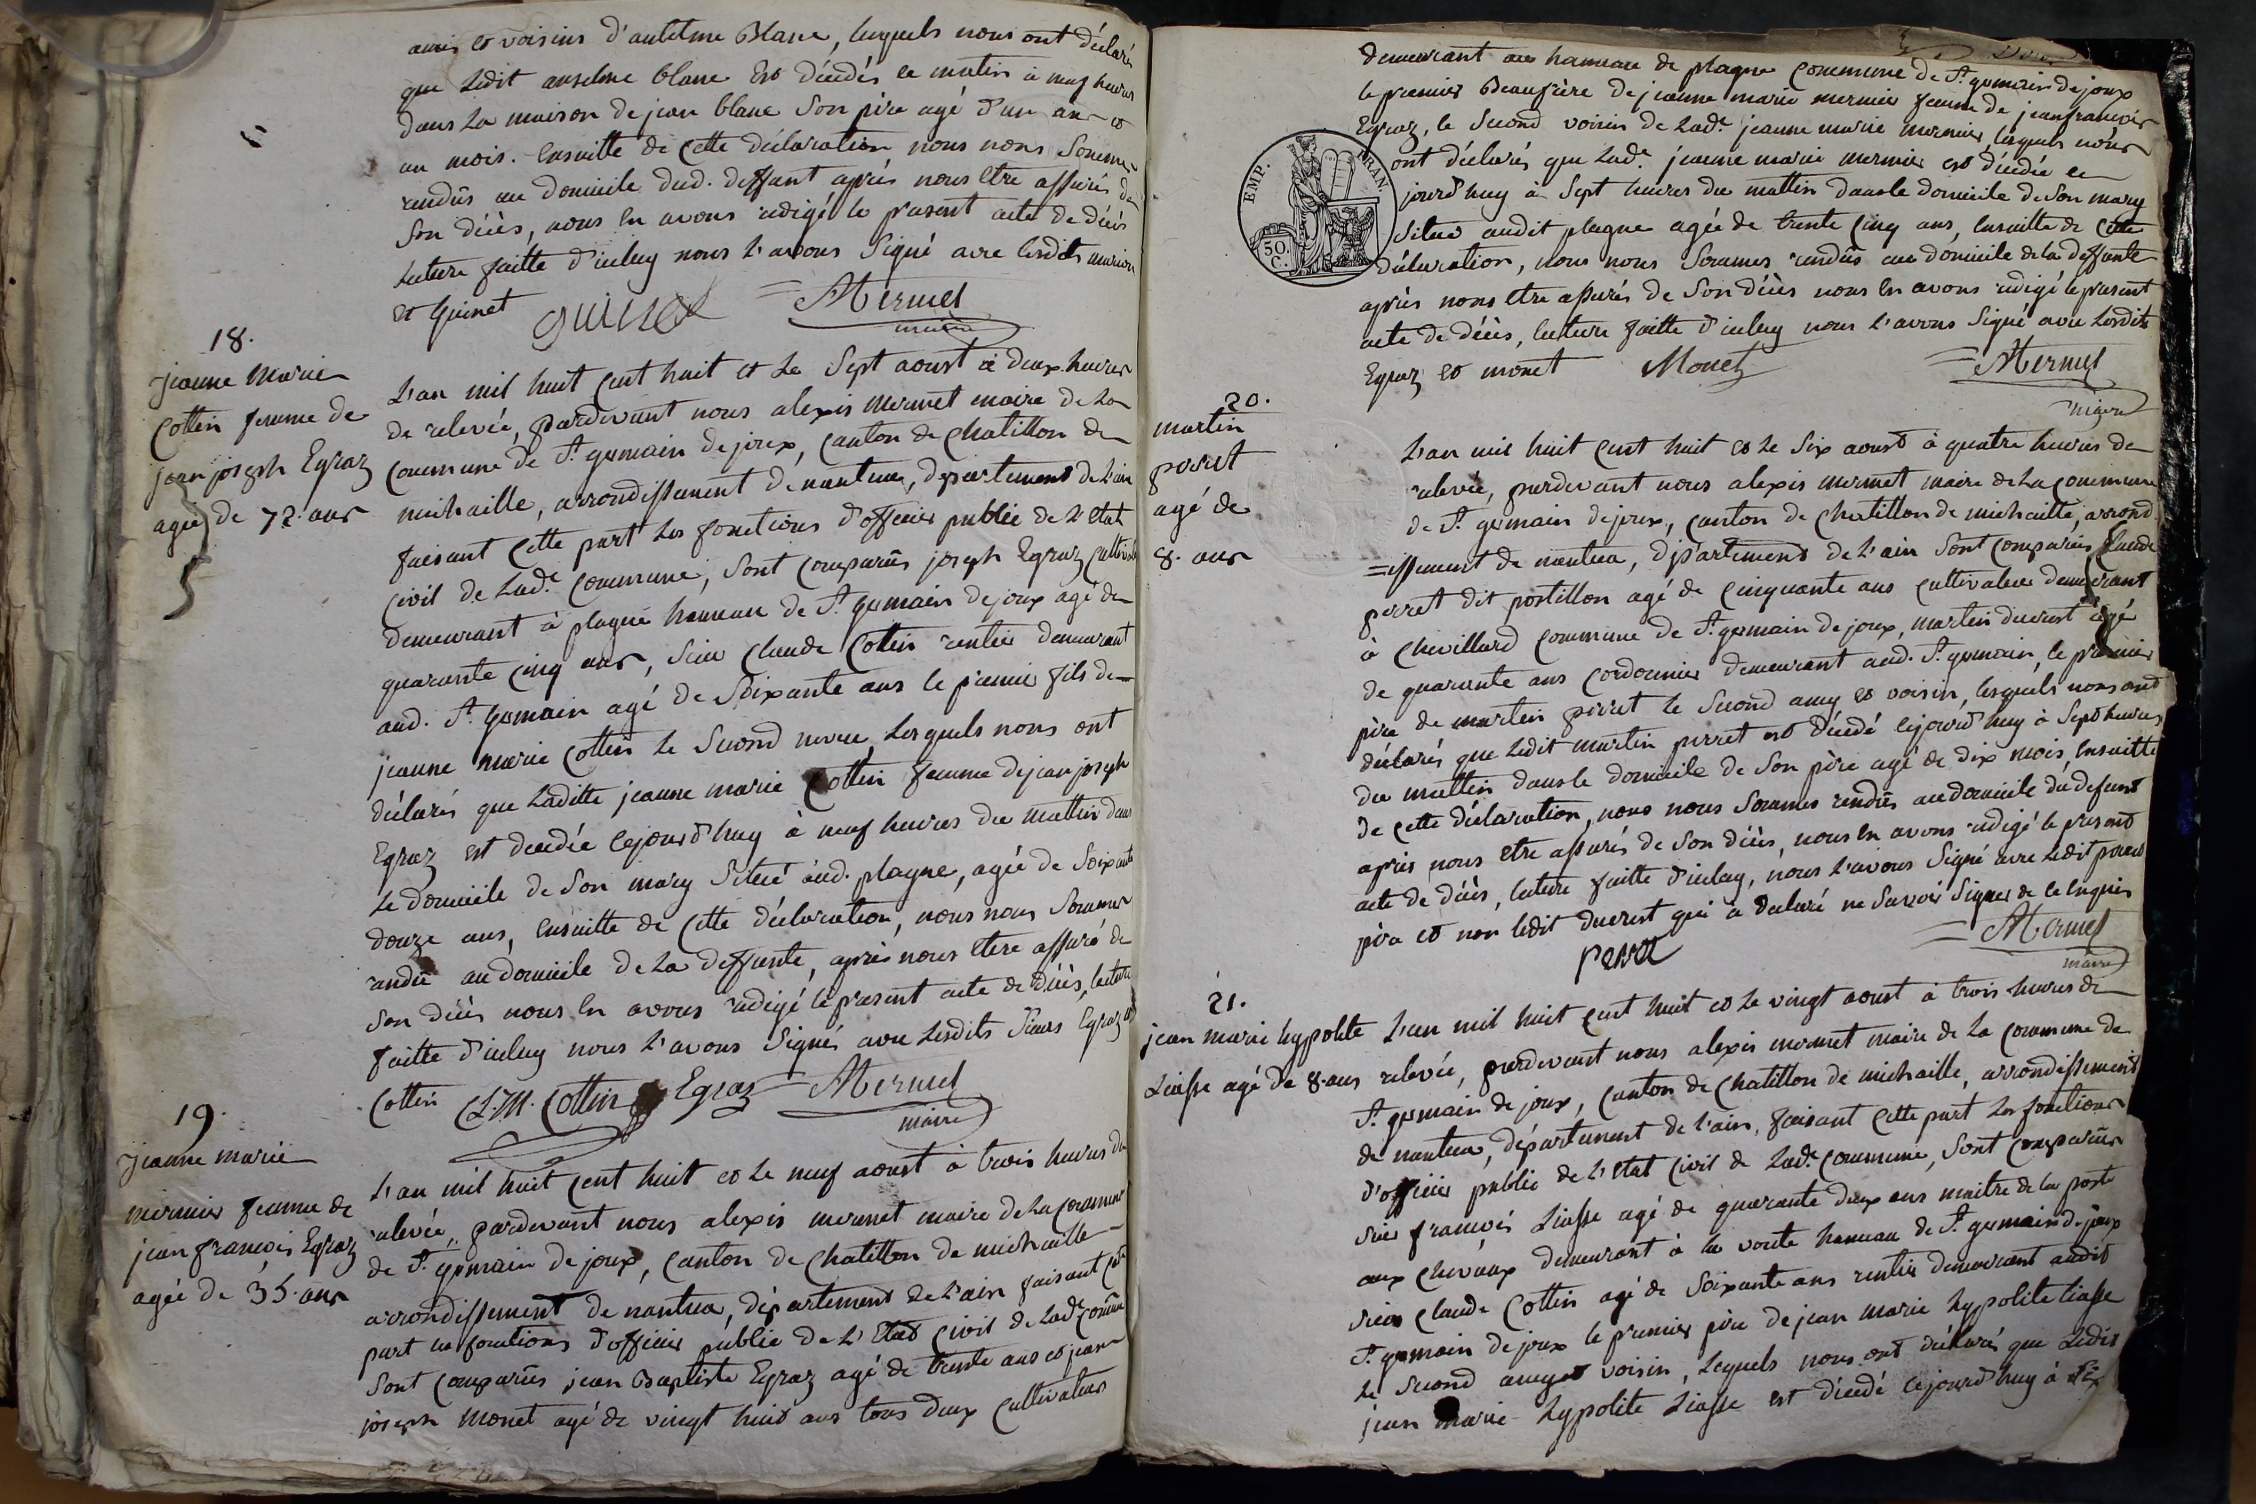 amis et voisins d'anselme Blanc, lesquels nous ont déclarés
que Ledit anselme blanc Est décédés ce matin à neuf heures
dans La maison de jean blanc Son père agé d'un an et
un mois. Ensuitte de Cette déclaration nous nous Sommes
rendûs au domicile dud. deffunt après nous etre assurés de
Son décès, nous En avons rédigé le présent acte de décès
Lecture faitte d'iceluy nous L'avons Signé avec Lesdits
et Guinet guinet AMermet
maire
18.
jeanne Marie
Cottin femme de
jean joseph Egraz
agée de 72. ans
L'an mil huit Cent huit et Le Sept aoust à deux heures
de relevée, pardevant nous alexis mermet maire de La
Commune de St. germain de joux, Canton de Chatillon de
michaille, arrondissement de nantua, département de L'ain
faisant Cette part Les fonctions d'officier public de L'etat
Civil de Lade. Commune, Sont Comparûs joseph Egraz
demeurant à plagne hameau de St. germain de joux agé de
quarante Cinq ans, Sieur Claude Cottin rentier demeurant
aud. St. germain agé de Soixante ans le premier fils de
jeanne marie Cottin Le Second neveu, Lesquels nous ont
déclarés que Laditte jeanne marie Cottin femme de jean joseph
Egraz est décédée Cejourd'huy à neuf heures du mattin dans
Le domicile de Son mary Situé aud. plagne, agée de Soixante
douze ans, Ensuitte de Cette déclaration, nous nous Sommes
rendu au domicile de La deffunte, après nous etre assuré de
Son décès nous En avons rédigé le présent acte de décès, lecture
faitte d'iceluy nous L'avons Signés avec Lesdits Sieurs Egraz et
Cottin C.M. Cottin Egraz AMermet
maire
19.
jeanne marie
mermier femme de
jean françois Egraz
agée de 35. ans
L'an mil huit Cent huit et Le neuf aoust à trois heures de
relevée, pardevant nous alexis mermet maire de La Commune
de St. germain de joux, Canton de Chatillon de michaille
arrondissement de nantua, département de L'ain faisant Cette
part Les fonctions d'officier public de L'Etat Civil de Lade. Comune
Sont Comparûs jean Baptiste Egraz agé de trente ans et jean
joseph Monet agé de vingt huit ans tous deux Cultivateurs
demeurant au hameau de plagne Commune de St. germain de joux
le premier Beaufrère de jeanne marie mermier femme de jean françois
Egraz, le Second voisin de Lade. jeanne marie mermier, lesquels nous
ont déclarés que Lade. jeanne marie mermier est décédée ce
jourd'huy à Sept heures du mattin dans le domicile de Son mary
Situé audit plagne agée de trente Cinq ans, Ensuitte de Cette
déclaration, nous nous Sommes rendûs au domicile de la deffunte
après nous etre assurés de Son décès nous En avons rédigé le présent
acte de décès, lecture faitte d'iceluy nous L'avons Signé avec Lesdits
Egraz et monet Monet AMermet
maire
EMP. FRAN.
50
C.
20.
martin
perret
agé de
8. ans
L'an mil huit Cent huit et Le Six aoust à quatre heures de
relevée, pardevant nous alexis mermet maire de La Commune
de St. germain de joux, Canton de Chatillon de michaille, arrond
=issement de nantua, département de L'ain Sont Comparûs Claude
perret dit postillon agé de Cinquante ans Cultivateur demeurant
à Chevillard Commune de St. germain de joux, martin ducrest agé
de quarante ans Cordonnier demeurant aud. St. germain, le premier
père de martin perret le Second amy et voisin, lesquels nous ont
déclarés que Ledit martin perret est décédé Cejourd'huy à Sept heures
du mattin dans le domicile de Son père agé de dix mois, Ensuitte
de Cette déclaration, nous nous Sommes rendûs au domicile du defunt
après nous etre assurés de Son décès, nous En avons rédigé le présent
acte de décès, lecture faitte d'iceluy, nous L'avons Signé avec Ledit perret
père et non ledit ducrest qui a déclaré ne Savoir Signer de ce Enquis
Perret AMermet
maire
21.
jean marie hypolite
Liasse agé de 8. ans
L'an mil huit Cent huit et Le vingt aoust à trois heures de
relevée, pardevant nous alexis mermet maire de La Commune de
St. germain de joux, Canton de Chatillon de michaille, arrondissement
de nantua, département de L'ain, faisant Cette part Les fonctions
d'officier public de L'Etat Civil de Lade. Commune, Sont Comparûs
Sieur françois Liasse agé de quarante deux ans maitre de la poste
aux Chevaux demeurant à la voute hameau de St. germain de joux
Sieur Claude Cottin agé de Soixante ans rentier demeurant audit
St. germain de joux le premier père de jean marie hypolite Liasse
Le Second amy et voisin, Lequels nous ont déclarés que Ledit
jean marie hypolite Liasse est décédé Cejourd'huy à